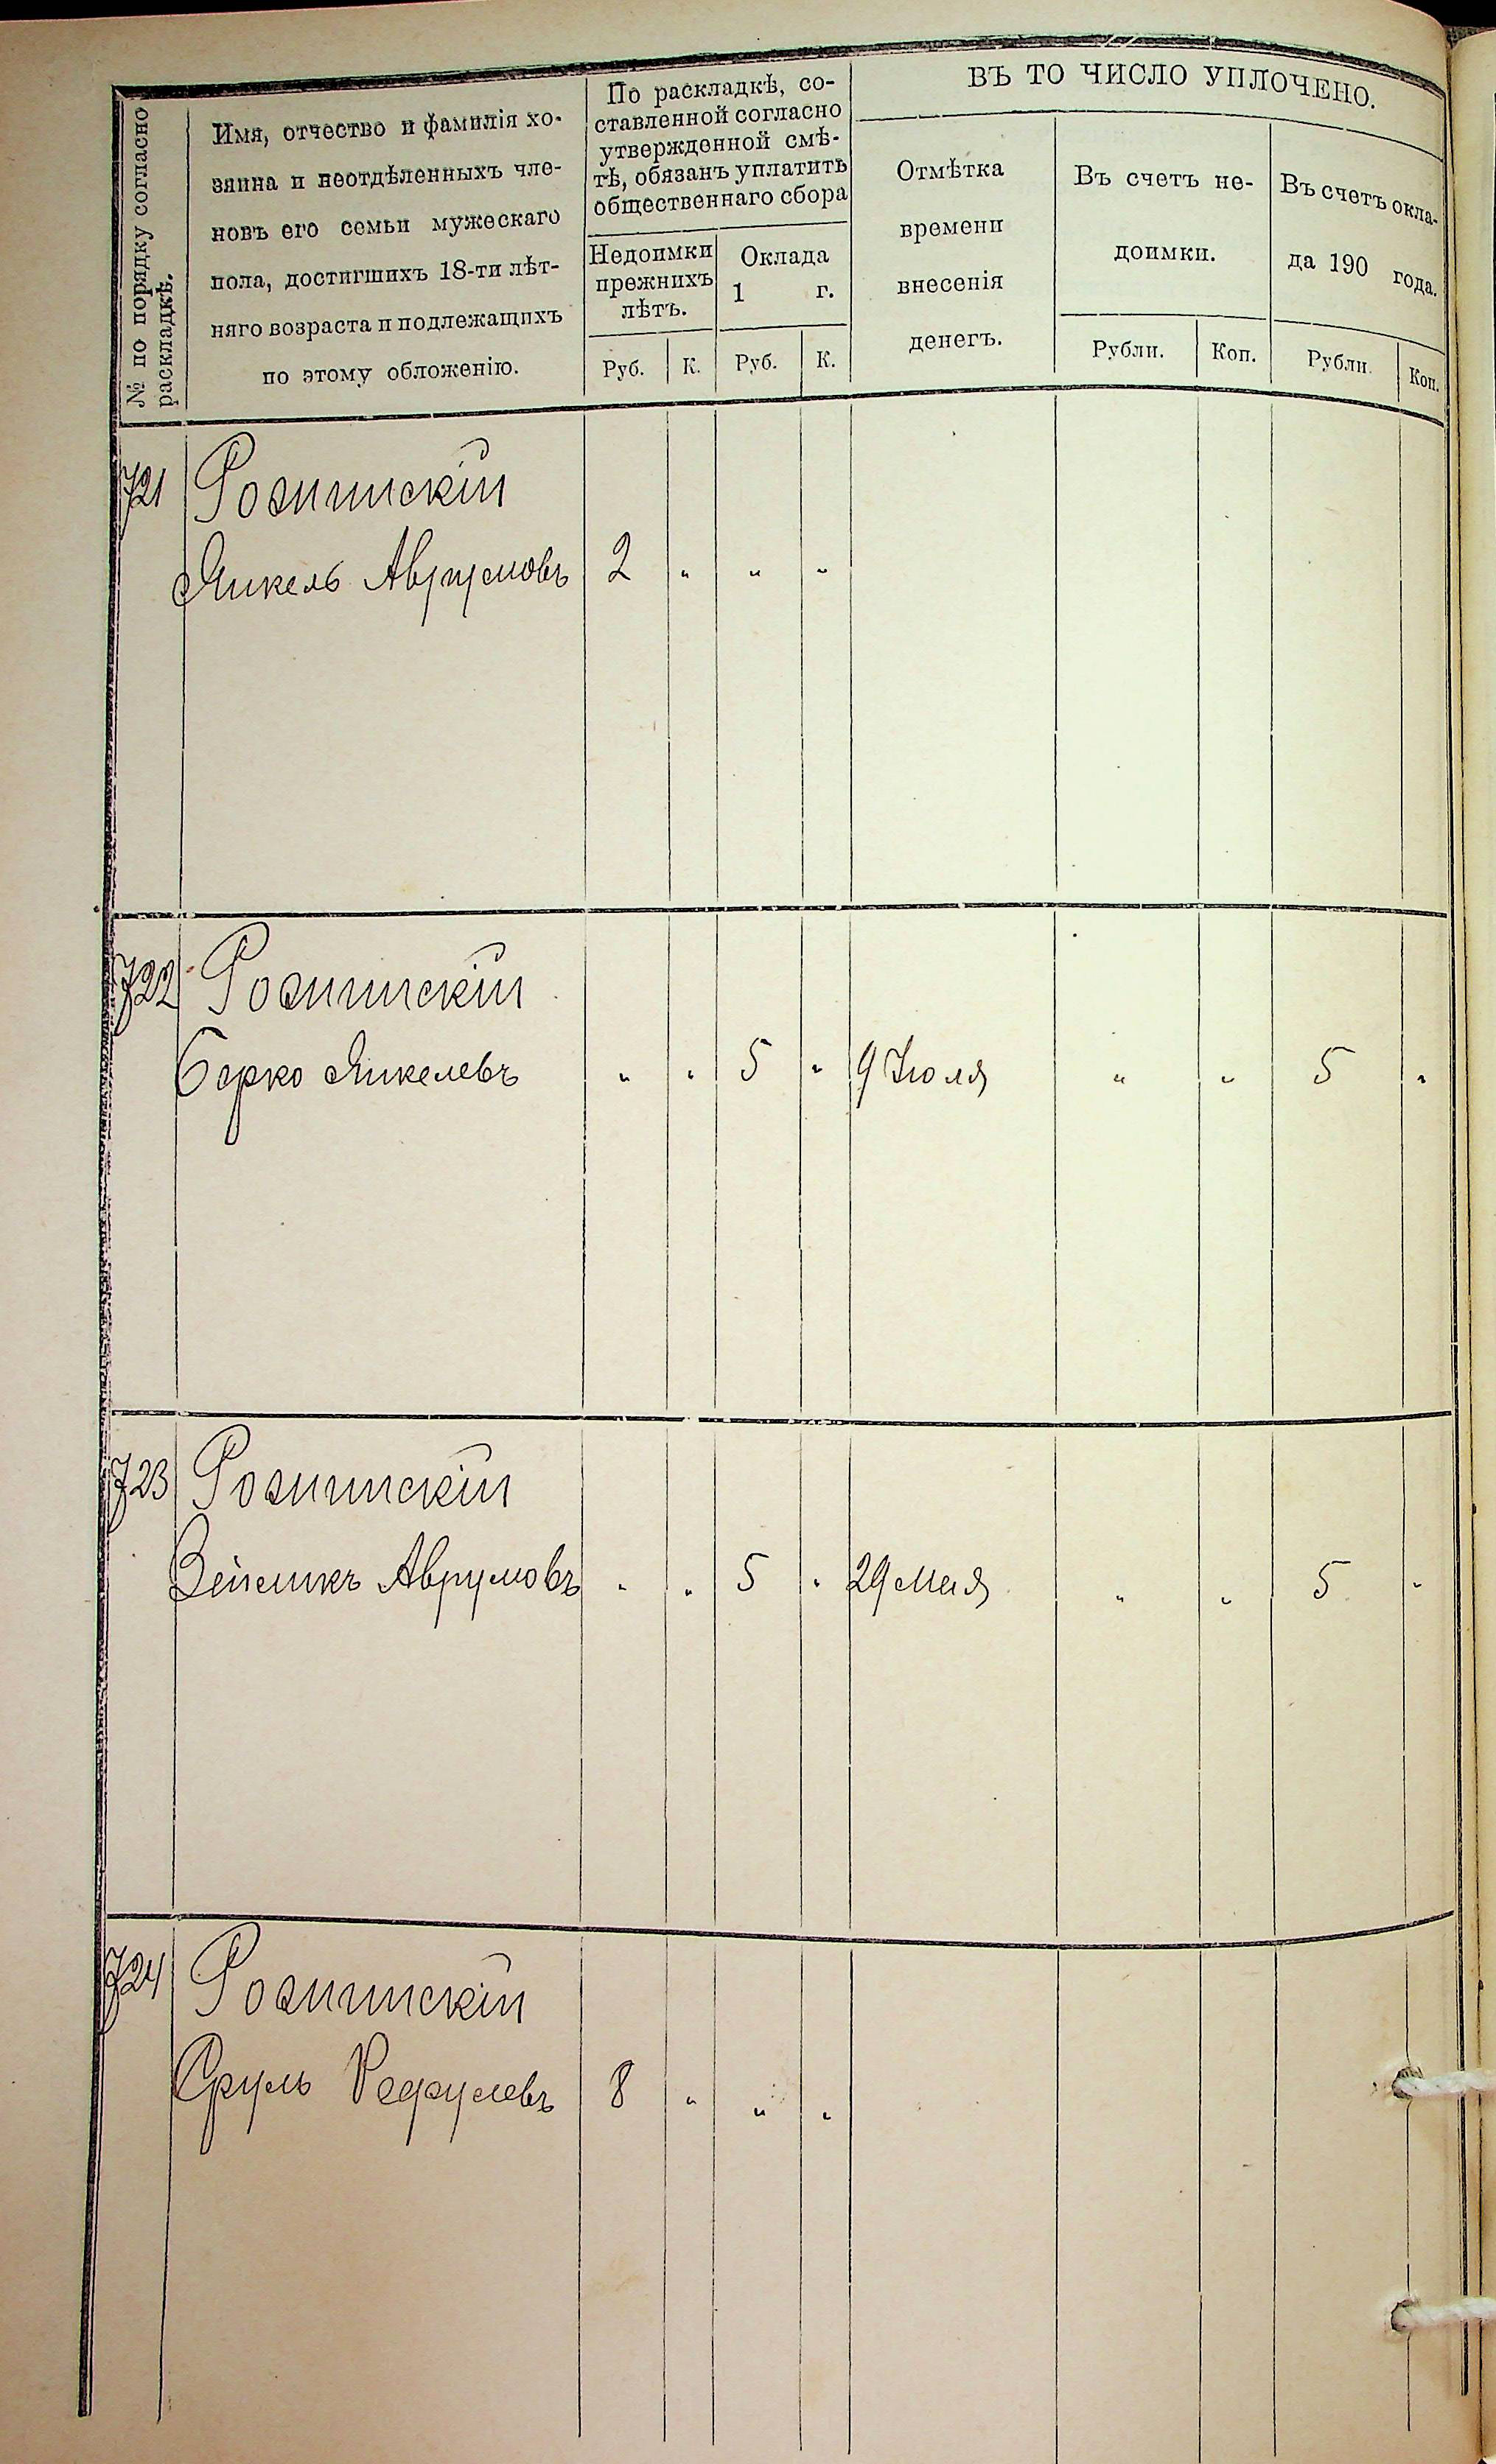 № по порядку согласно
раскладкѣ.
Имя, отчество и фамилія хо-
зяина и неотдѣленныхъ чле-
новъ его семьи мужескаго
пола, достигшихъ 18-ти лѣт-
няго возраста и подлежащихъ
по этому обложенію.
По раскладкѣ, со-
ставленной согласно
утвержденной смѣ-
тѣ, обязанъ уплатить
общественнаго сбора
Недоимки
прежнихъ
лѣтъ.
Оклада
1 г.
Руб. К. Руб. К.
ВЪ ТО ЧИСЛО УПЛОЧЕНО.
Отмѣтка
времени
внесенія
денегъ.
Въ счетъ не-
доимки.
Рубли. Коп.
Въ счетъ окла-
да 190 года.
Рубли. Коп.
721
Янкель Аврумовъ 2 „ „ „
722
Берко Янкелевъ „ „ 5 „ 9 Іюля „ „ 5 „
723
Зейликъ Аврумовъ „ „ 5 „ 29 Мая „ „ 5 „
724
Сруль 8 „ „ „